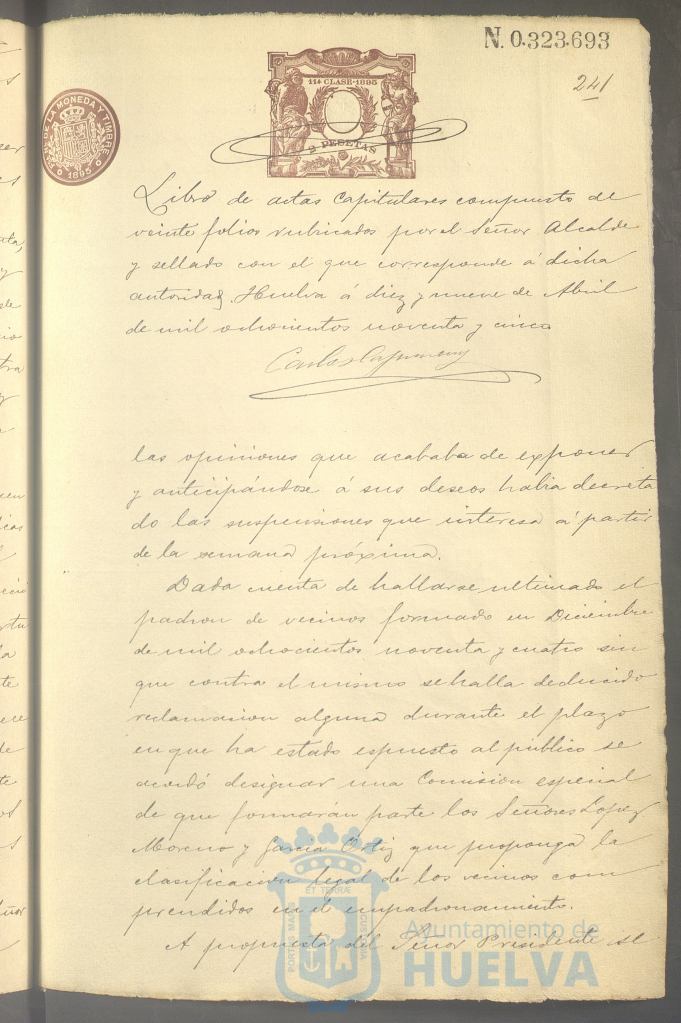 N. 0.323.693
241
11ª CLASE-1895
2 PESETAS
DE LA MONEDA Y TIMBRE
1895
Libro de actas Capitulares compuesto de
veinte folios rubricados por el Señor Alcalde
y sellado con el que corresponde á dicha
autoridad. Huelva á diez y nueve de Abril
de mil ochocientos noventa y cinco
Carlos
las opiniones que acababa de exponer
y anticipándose á sus deseos habia decreta
do las suspensiones que interesa á partir
de la semana próxima.
Dada cuenta de hallarse ultimado el
padron de vecinos formado en Diciembre
de mil ochocientos noventa y cuatro sin
que contra el mismo se halla deducido
reclamacion alguna durante el plazo
en que ha estado espuesto al público se
acordó designar una Comision especial
de que formarán parte los Señores Lopez
Moreno y Garcia Ortiz que proponga la
clasificacion legal de los vecinos com
prendidos en el empadronamiento.
A propuesta del Señor Presidente se
PORTUS MARIS ET TERRÆ CUSTODIA
Ayuntamiento de
HUELVA